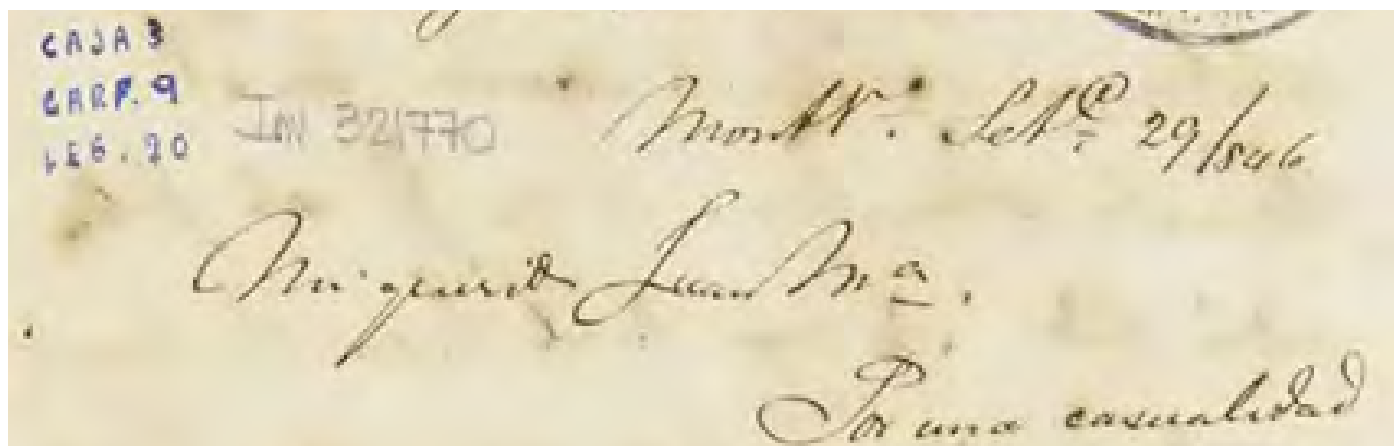 CAJA 3
CARP. 9
LEG. 20
Inv 321770
Montev.º Set.e 29/846
Mi querido Juan M.a.
Por una casualidad